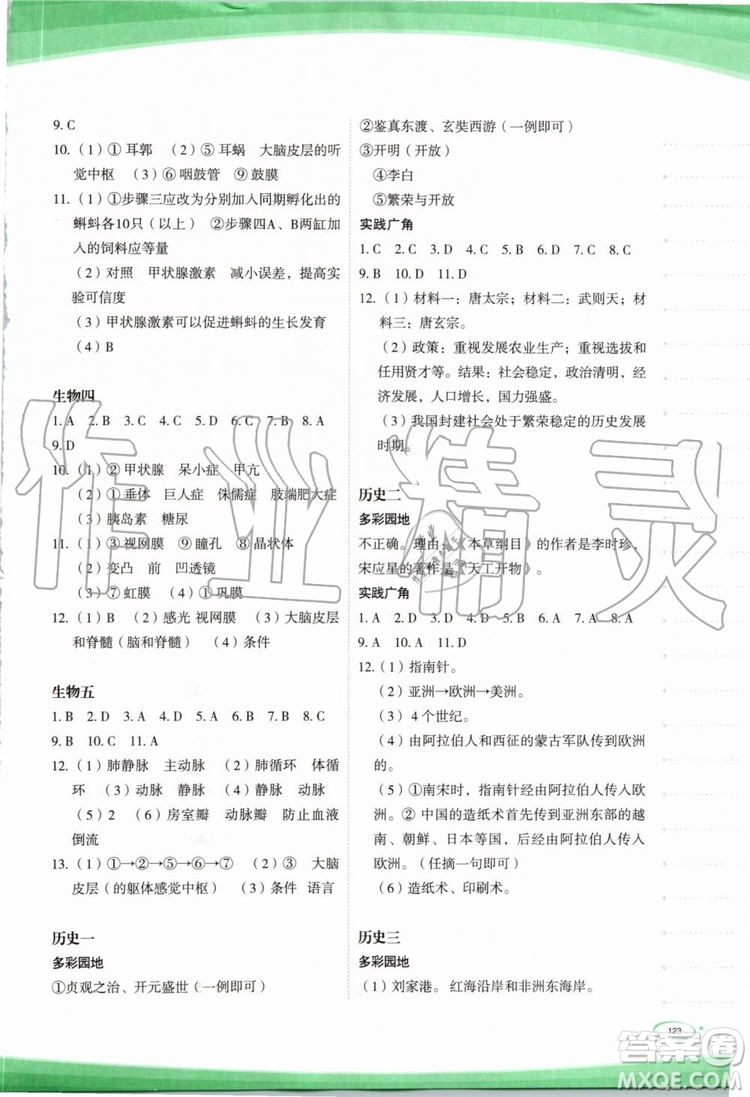 9. C
10.（1）① 耳郭 （2）⑤ 耳蜗 大脑皮层的听
觉中枢 （3）⑥ 咽鼓管 ⑨ 鼓膜
11.（1）①步骤三应改为分别加入同期孵化出的
蝌蚪各10只（以上） ②步骤四A、B两缸加
入的饲料应等量
（2）对照 甲状腺激素 减小误差，提高实
验可信度
（3）甲状腺激素可以促进蝌蚪的生长发育
（4）B
生物四
1. A 2. B 3. C 4. C 5. C 6. C 7. B 8. A
9. D
10.（1）② 甲状腺 呆小症 甲亢
（2）① 垂体 巨人症 侏儒症 肢端肥大症
（3）胰岛素 糖尿
11.（1）③视网膜 ⑨ 瞳孔 ⑧ 晶状体
（2）变凸 前 凹透镜
（3）⑦ 虹膜 （4）① 巩膜
12.（1）B （2）感光 视网膜 （3）大脑皮层
和脊髓（脑和脊髓）（4）条件
生物五
1. B 2. D 3. A 4. D 5. A 6. B 7. B 8. D
9. B 10. C 11. A
12.（1）肺静脉 主动脉 （2）肺循环 体循
环 （3）动脉 静脉 （4）动脉 静脉
（5）2 （6）房室瓣 动脉瓣 防止血液
倒流
13.（1）①→②→⑤→⑥→⑦ （2）③ 大脑
皮层（的躯体感觉中枢）（3）条件 语言
历史一
多彩园地
①贞观之治、开元盛世（一例即可）
②鉴真东渡、玄奘西游（一例即可）
③开明（开放）
④李白
⑤繁荣与开放
实践广角
1. C 2. C 3. D 4. C 5. D 6. C 7. D 8. D
9. B 10. D 11. D
12.（1）材料一：唐太宗；材料二：武则天；材
料三：唐玄宗。
（2）政策：重视发展农业生产；重视选拔和
任用贤才等。结果：社会稳定，政治清明，
经济发展，人口增长，国力强盛。
（3）我国封建社会处于繁荣稳定的历史发展
时期。
历史二
多彩园地
不正确。理由：《本草纲目》的作者是李时珍，
宋应星的著作是《天工开物》。
实践广角
1. A 2. C 3. D 4. B 5. D 6. A 7. A 8. A
9. A 10. A 11. D
12.（1）指南针。
（2）亚洲→欧洲→美洲。
（3）4 个世纪。
（4）由阿拉伯人和西征的蒙古军队传到欧洲
的。
（5）①南宋时，指南针经由阿拉伯人传入欧
洲。② 中国的造纸术首先传到亚洲东部的越
南、朝鲜、日本等国，后经由阿拉伯人传入
欧洲。（任摘一句即可）
（6）造纸术、印刷术。
历史三
多彩园地
（1）刘家港。 红海沿岸和非洲东海岸。
123
作业精灵
答案圈
MXQE.COM